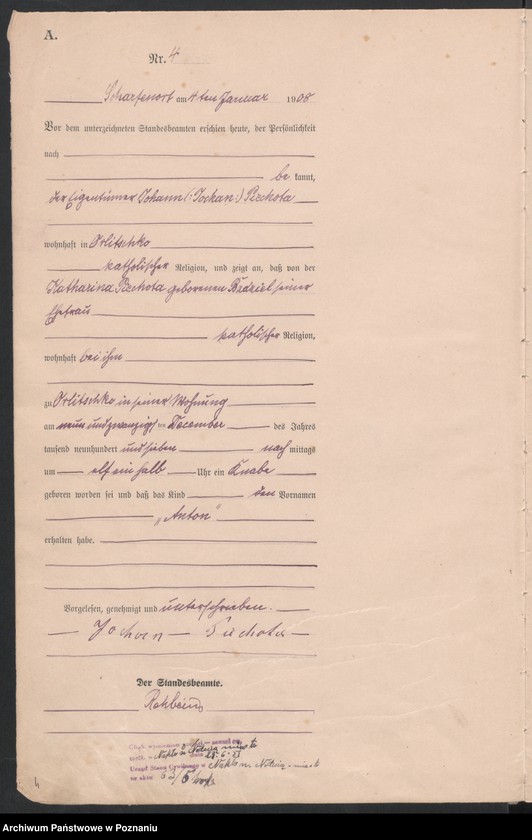 A.
Nr. 4
Scharfenort am 4ten Januar 1908
Vor dem unterzeichneten Standesbeamten erschien heute, der Persönlichkeit
nach
be kannt,
der Eigentümer Johann (: Jochan :) Piechota
wohnhaft in Orlitschko
katholischer Religion, und zeigt an, daß von der
Katharina Piechota geborenen seiner
Ehefrau
katholischer Religion,
wohnhaft bei ihm
zu Orlitschko in seiner Wohnung
am neun und zwanzigsten December des Jahres
tausend neunhundert und sieben nach mittags
um elf ein halb Uhr ein Knabe
geboren worden sei und daß das Kind den Vornamen
„Anton“
erhalten habe.
Vorgelesen, genehmigt und unterschrieben.
Jochan Piechota
Der Standesbeamte.
Rehbein
Nakło n Notecią miasto
Urząd Stanu Cywilnego w Nakło n. Notecią - miasto
nr aktu
Archiwum Państwowe w Poznaniu